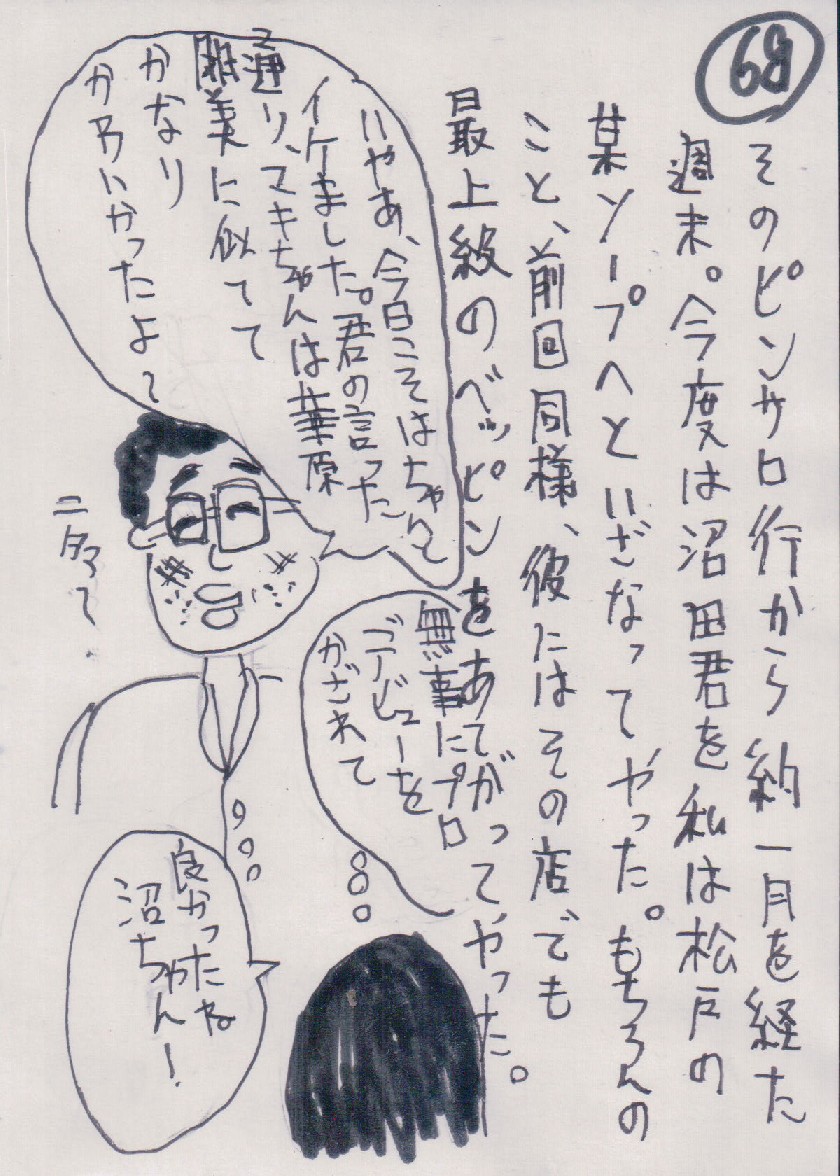 68
そのピンサロ行から約一月を経た
週末。今度は沼田君を私は松戸の
某ソープへといざなってやった。もちろんの
こと、前回同様、彼にはその店でも
最上級のベッピンをあてがってやった。
いやあ、今日こそはちゃんと
イケました。君の言った
通り、マキちゃんは華原
朋美に似てて
かなり
かわいかったよ〜
ニタァ〜
無事にプロ
ゴデビューを
かざれて
良かったね
沼ちゃん!